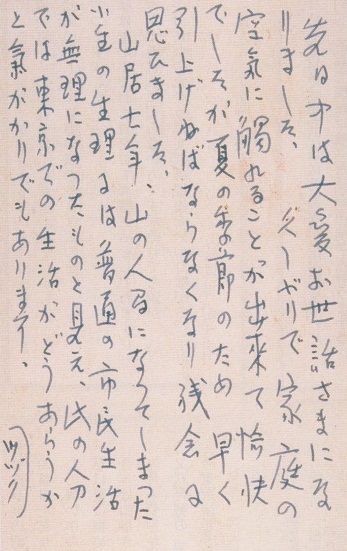 先日中は大變お世話さまにな
りました、久しぶりで家庭の
空氣に觸れることが出来て愉快
でしたが夏の季節のため早く
引上げねばならなくなり残念に
思ひました、
山居七年、山の人間になつてしまつた
小生の生理には普通の市民生活
が無理になつたものと見え、此の人刀
では東京での生活がどうあらうか
と氣がかりでもあります、
ツヅク